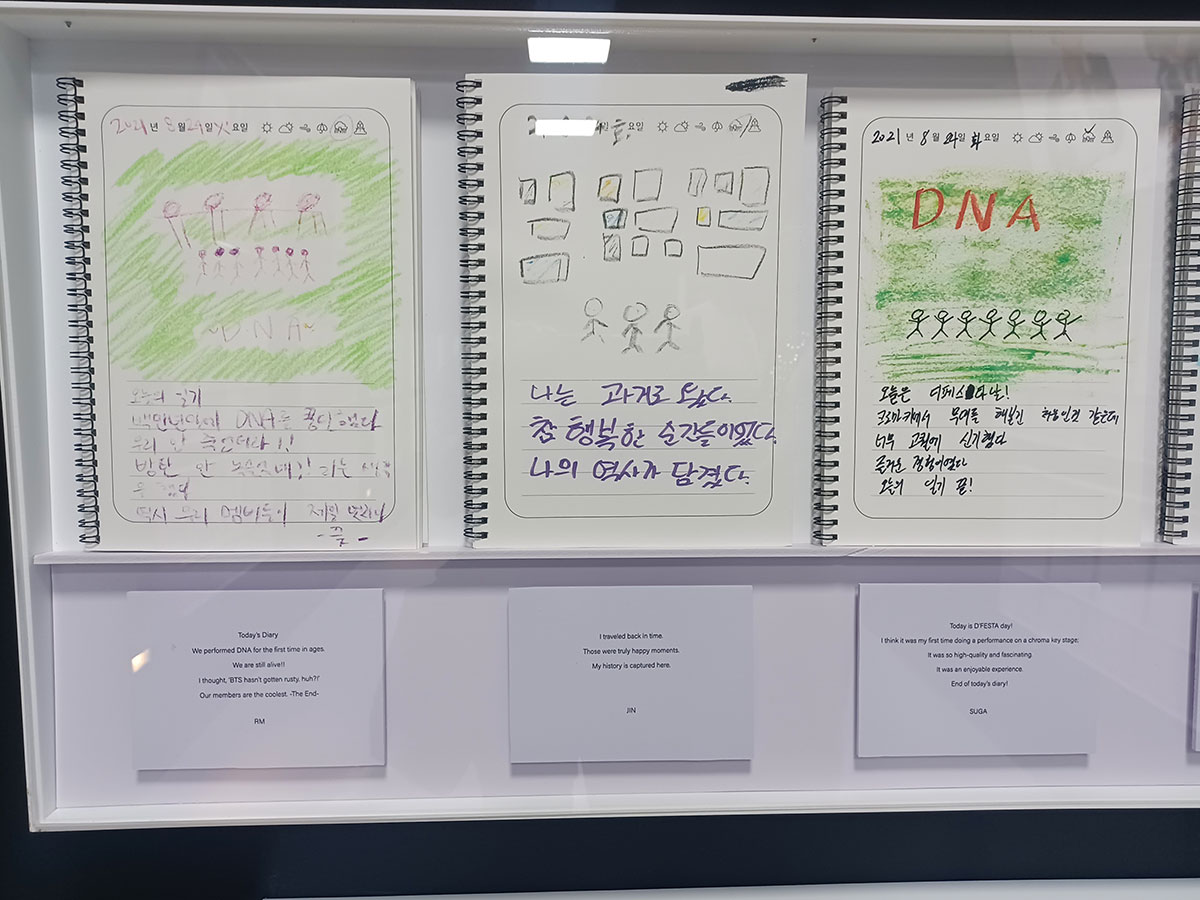 2021년 8월 24일 화요일
DNA
오늘의 일기
백만년만에 DNA를 했다
우리 안 죽었더라!!
방탄 안 라는 생각
을 했다
역시 우리 멤버들이 제일 멋지다
-끝-
나는 과거로 왔다.
참 행복한 순간들이었다.
나의 역사가 담겼다.
2021년 8월 24일 화요일
DNA
오늘은 디페스타날!
크로마키에서 무대를 해본건 처음인것 같은데
너무 고퀄에 신기했다
즐거운 경험이였다
오늘의 일기 끝!
Today's Diary
We performed DNA for the first time in ages.
We are still alive!!
I thought, 'BTS hasn't gotten rusty, huh?!'
Our members are the coolest. -The End-
RM
I traveled back in time.
Those were truly happy moments.
My history is captured here.
JIN
Today is D'FESTA day!
I think it was my first time doing a performance on a chroma key stage;
It was so high-quality and fascinating.
It was an enjoyable experience.
End of today's diary!
SUGA